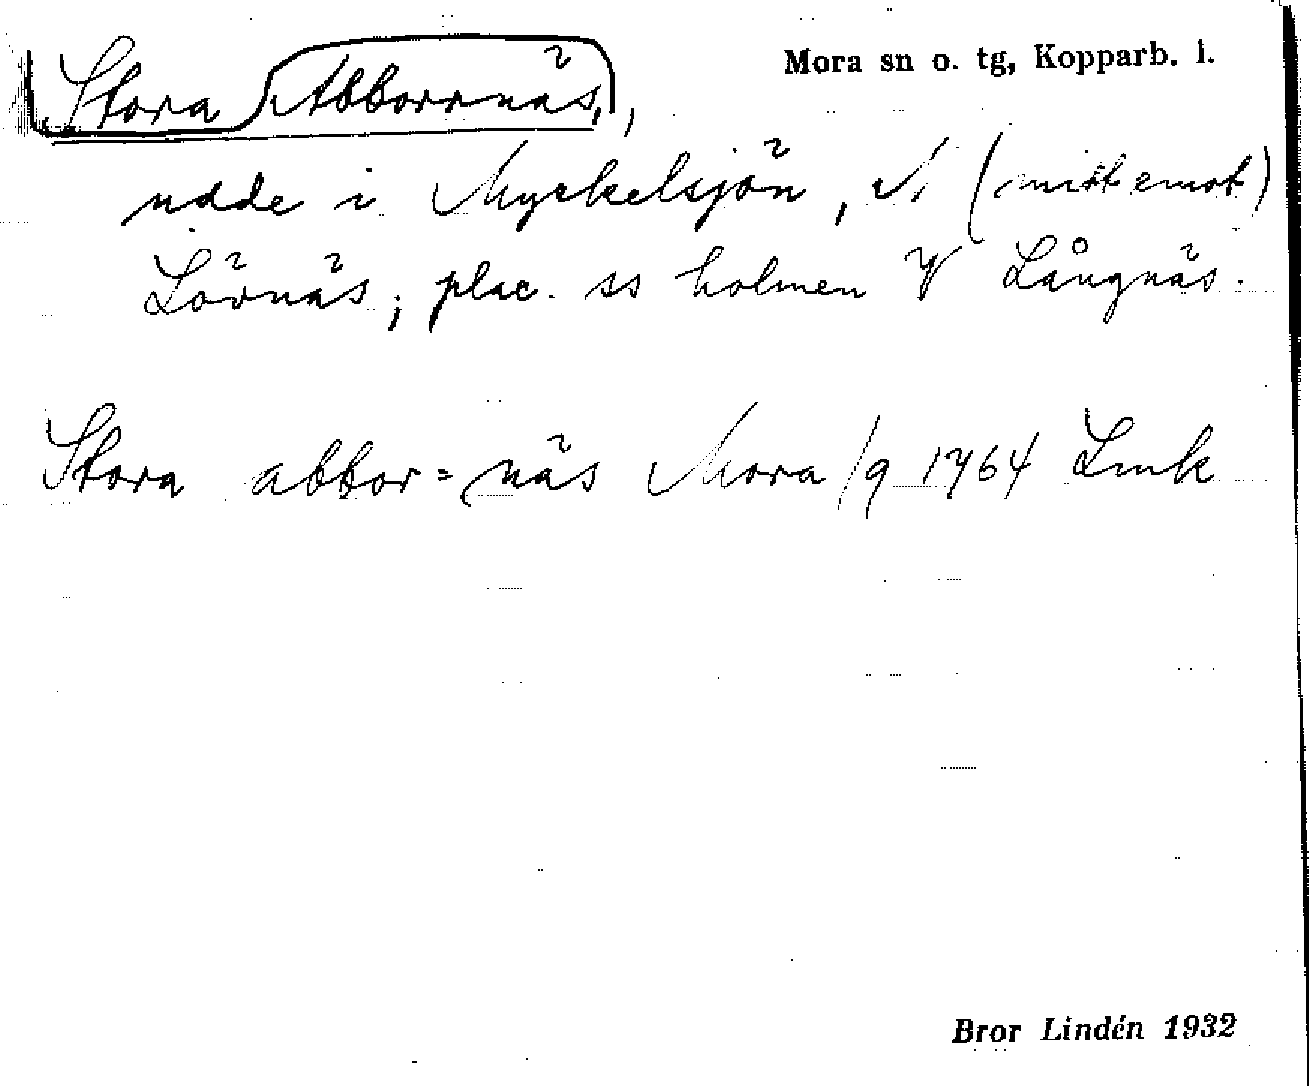 Stora Abborrnäs,
Mora sn o. tg, Kopparb. l.
udde i Myckelsjön, N (mitt emot)
Lövnäs; plac. ss holmen V Långnäs.
Stora abbor=näs Mora /9 1764 Lmk
Bror Lindén 1932